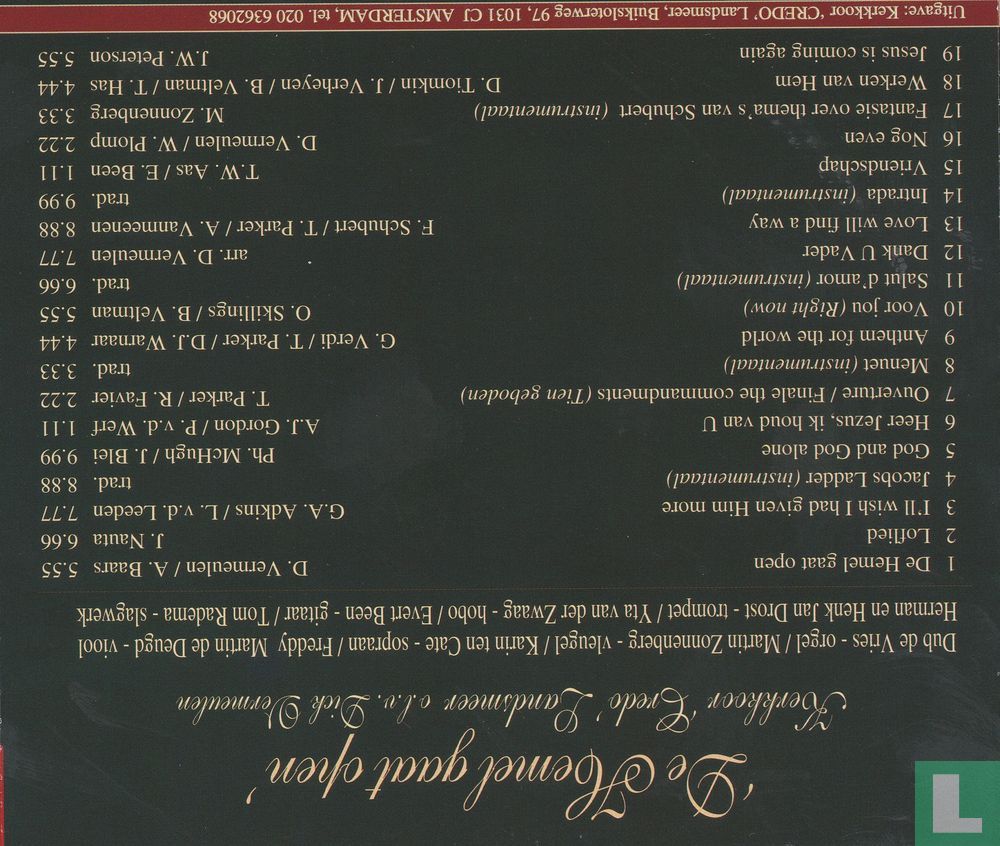 'De Hemel gaat open'
Kerkkoor 'Credo' Landsmeer o.l.v. Dick Vermeulen
Dub de Vries - orgel / Martin Zonnenberg - vleugel / Karin ten Cate - sopraan / Freddy Martin de Deugd - viool
Herman en Henk Jan Drost - trompet / Yta van der Zwaag - hobo / Evert Been - gitaar / Tom Radema - slagwerk
1 De Hemel gaat open D. Vermeulen / A. Baars 5.55
2 Loflied J. Nauta 6.66
3 I'll wish I had given Him more G.A. Adkins / L. v.d. Leeden 7.77
4 Jacobs Ladder (instrumentaal) trad. 8.88
5 God and God alone Ph. McHugh / J. Blei 9.99
6 Heer Jezus, ik houd van U A.J. Gordon / P. v.d. Werf 1.11
7 Ouverture / Finale the commandments (Tien geboden) T. Parker / R. Favier 2.22
8 Menuet (instrumentaal) trad. 3.33
9 Anthem for the world G. Verdi / T. Parker / D.J. Warnaar 4.44
10 Voor jou (Right now) O. Skillings / B. Veltman 5.55
11 Salut d'amor (instrumentaal) trad. 6.66
12 Dank U Vader arr. D. Vermeulen 7.77
13 Love will find a way F. Schubert / T. Parker / A. Vanmeenen 8.88
14 Intrada (instrumentaal) trad. 9.99
15 Vriendschap T.W. Aas / E. Been 1.11
16 Nog even D. Vermeulen / W. Plomp 2.22
17 Fantasie over thema's van Schubert (instrumentaal) M. Zonnenberg 3.33
18 Werken van Hem D. Tiomkin / J. Verheyen / B. Veltman / T. Has 4.44
19 Jesus is coming again J.W. Peterson 5.55
Uitgave: Kerkkoor 'CREDO' Landsmeer, Buiksloterweg 97, 1031 CJ AMSTERDAM, tel. 020 6362068
L